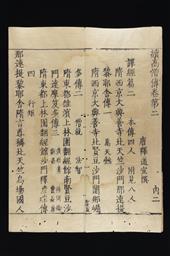 續高僧傳卷第二 内二
唐釋道宣撰
譯經篇二 本傳四人 附見八人
隋西京大興善寺北天竺沙門那連提
黎耶舍傳一 萬天懿
隋西京大興善寺北賢豆沙門闍那崛
多傳二 僧就 法智
隋東都雒濱上林園翻經館南賢豆沙
門達摩笈多傳三
隋東都上林園翻經館沙門釋彥琮傳
四 行矩
那連提黎耶舍隋言尊稱北天竺烏場國人